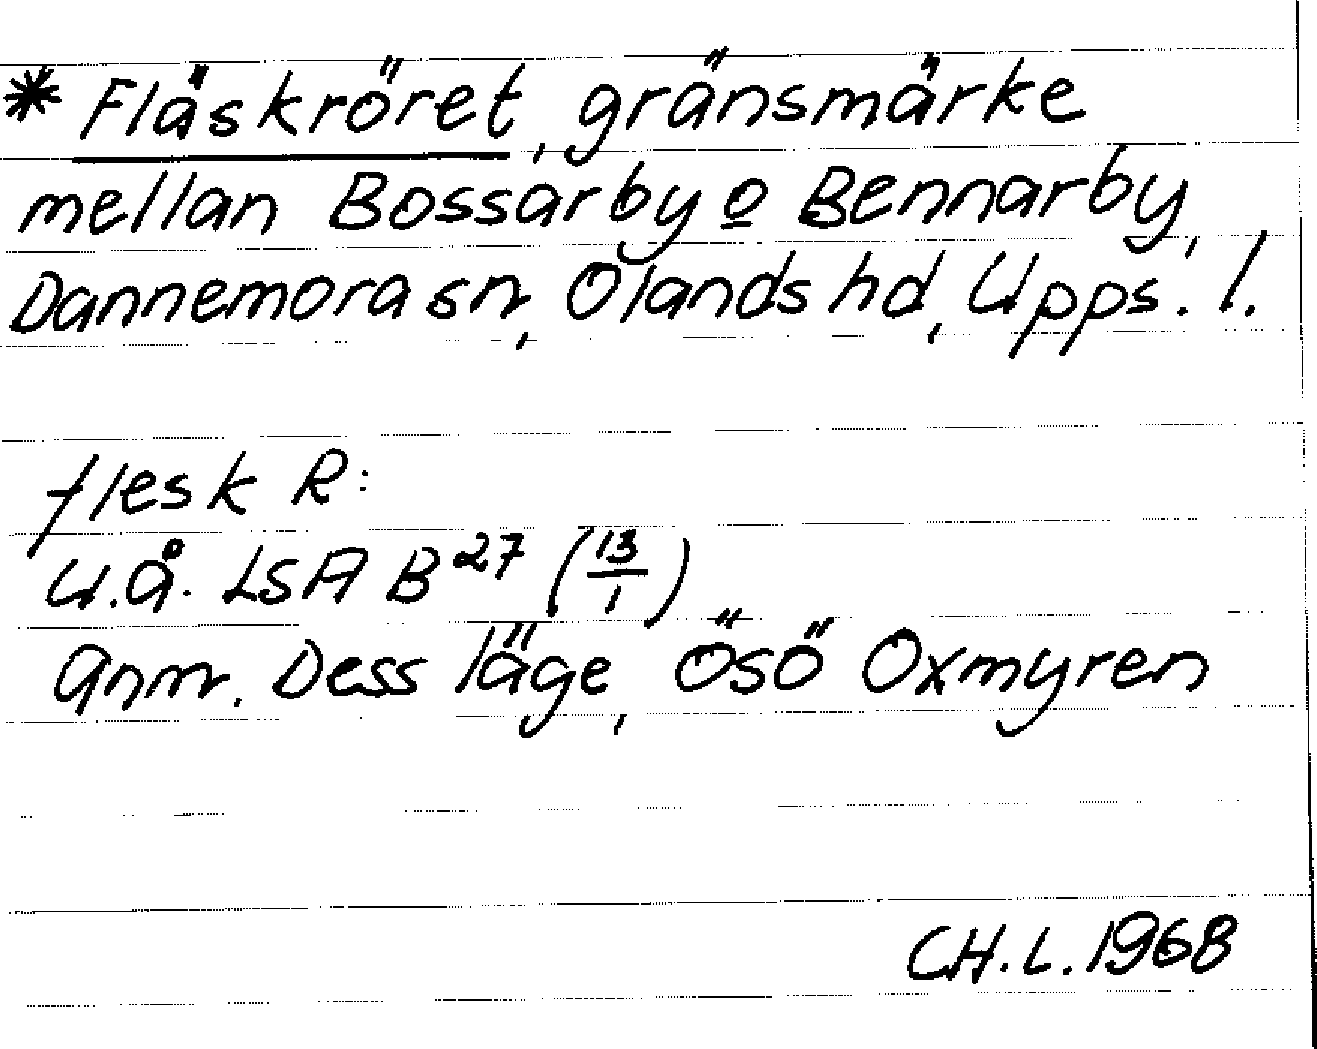 * Fläskröret, gränsmärke
mellan Bossarby o Bennarby,
Dannemora sn, Olands hd, Upps. l.
flesk R:
u.å. LSA B 27 (13/1)
Anm. Dess läge, ösö Oxmyren
CH.L. 1968